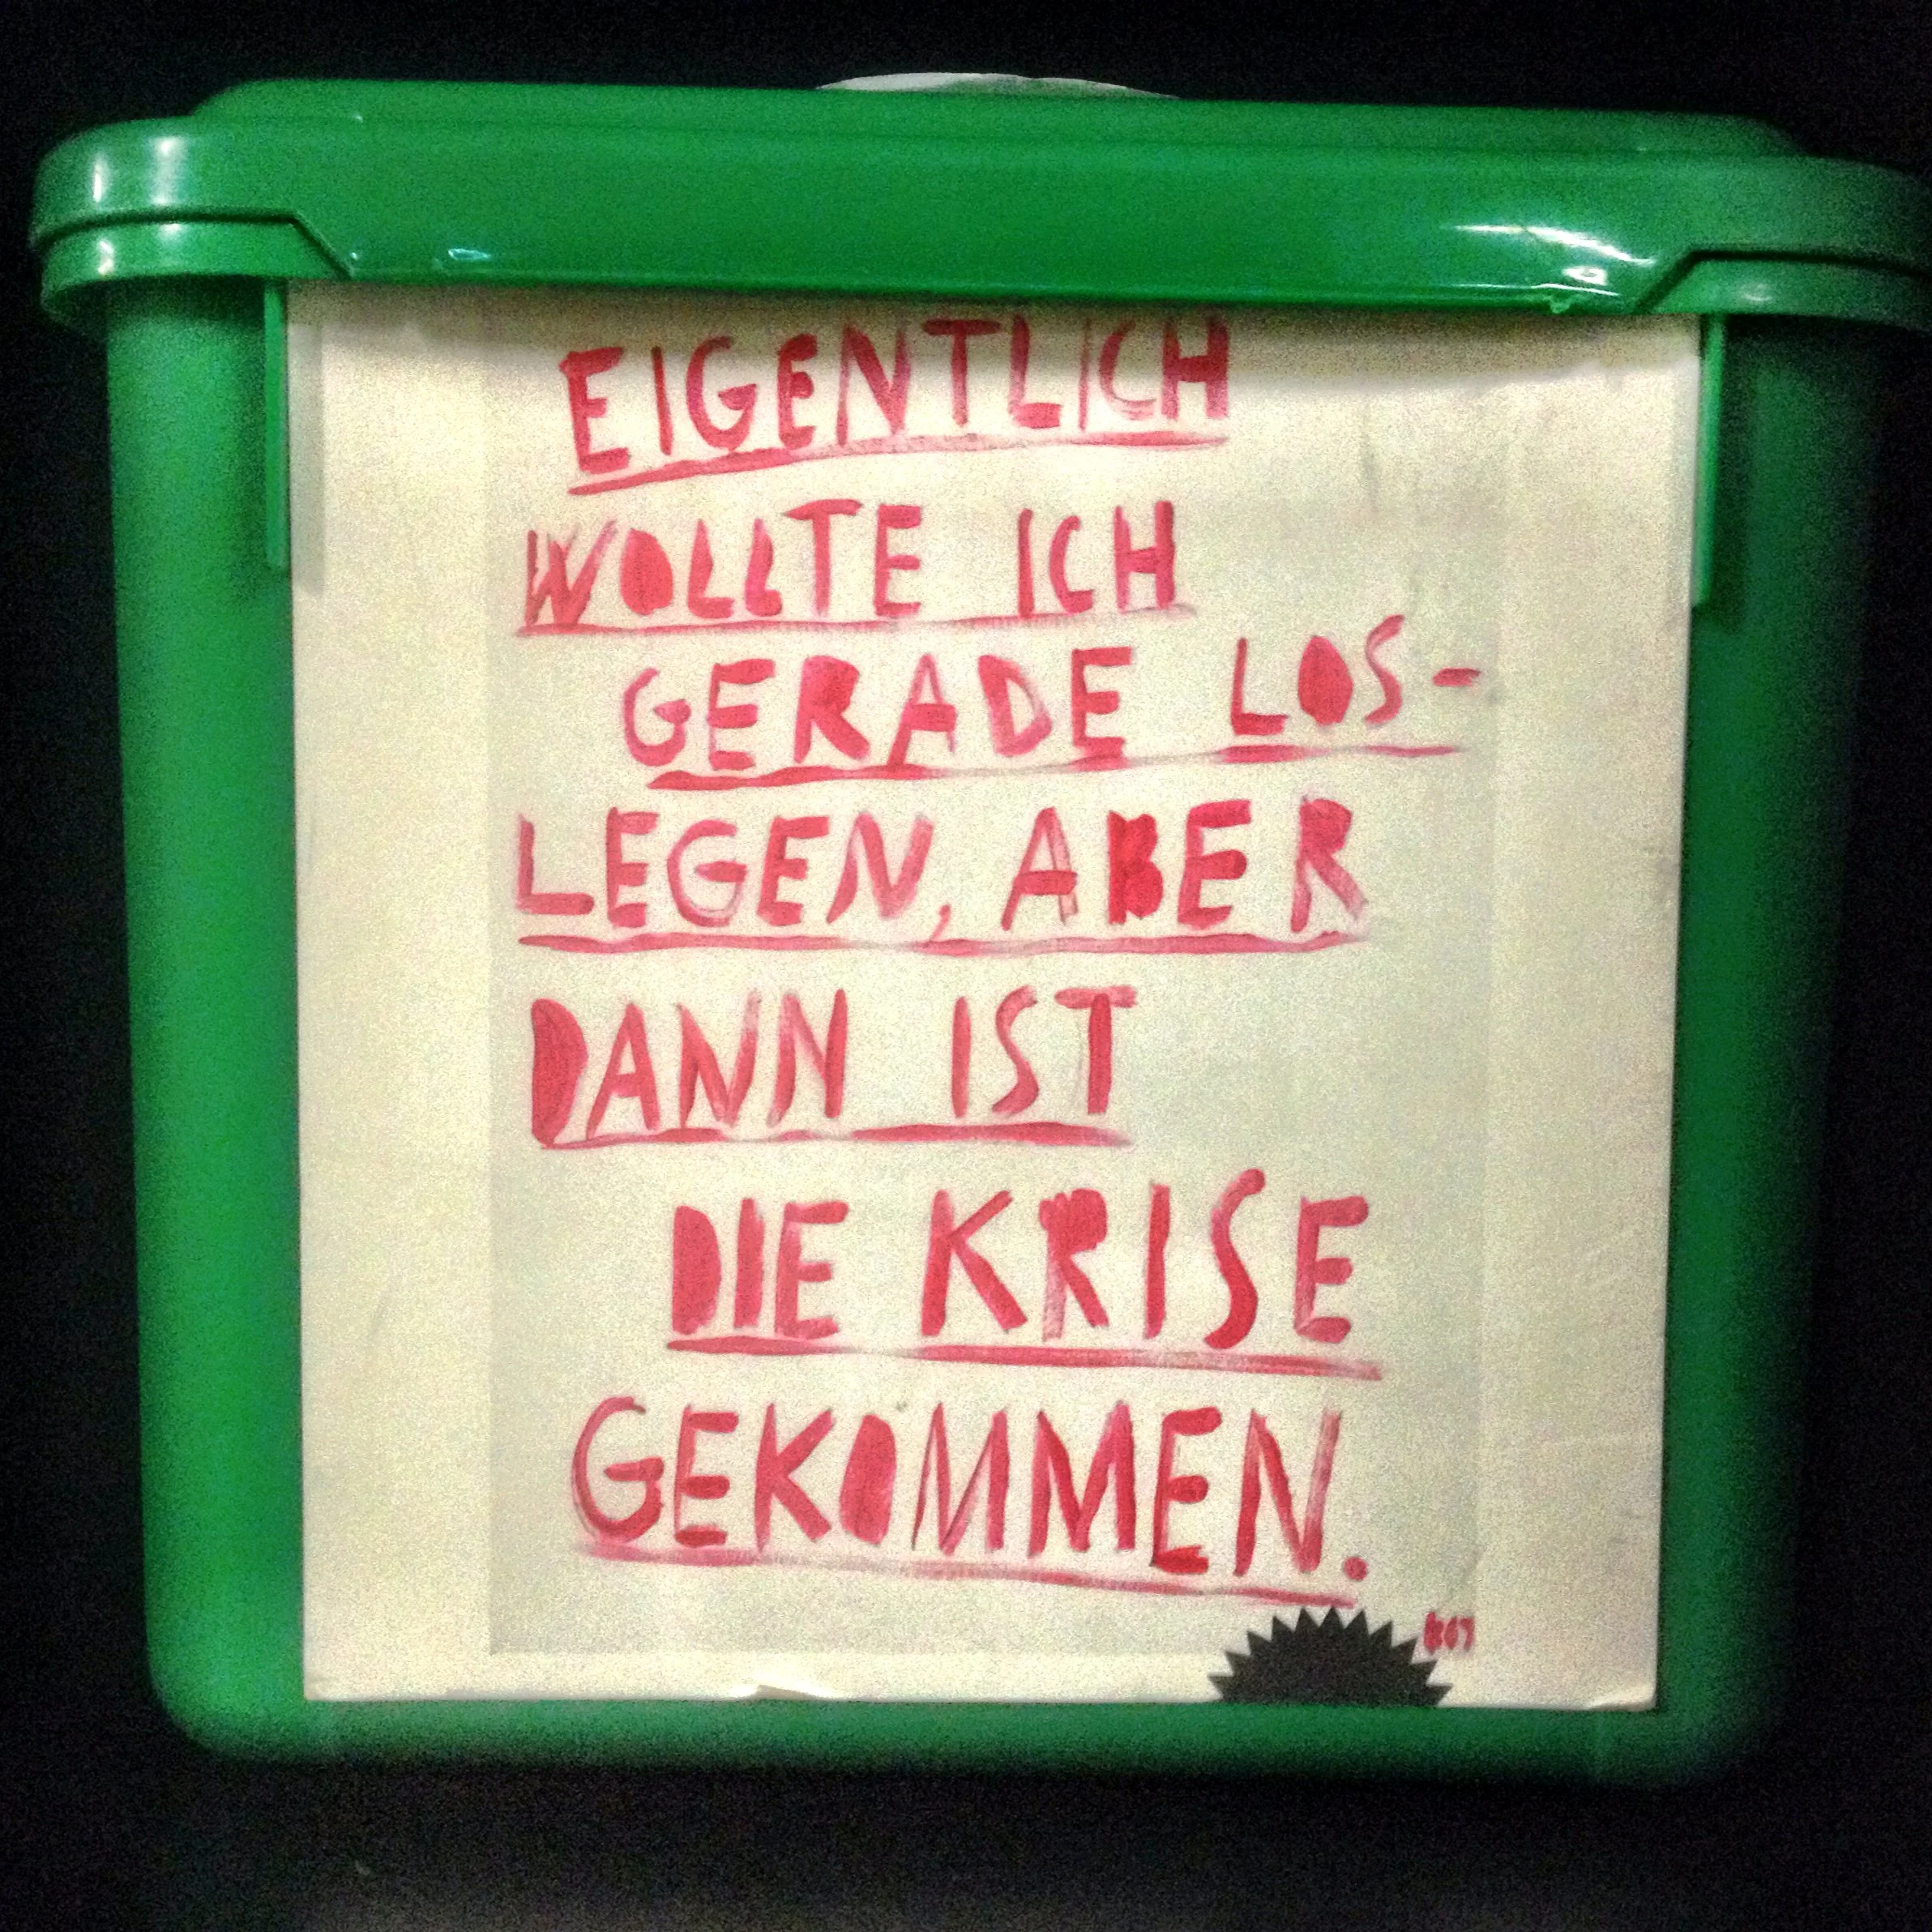 EIGENTLICH
WOLLTE ICH
GERADE LOS-
LEGEN, ABER
DANN IST
DIE KRISE
GEKOMMEN.